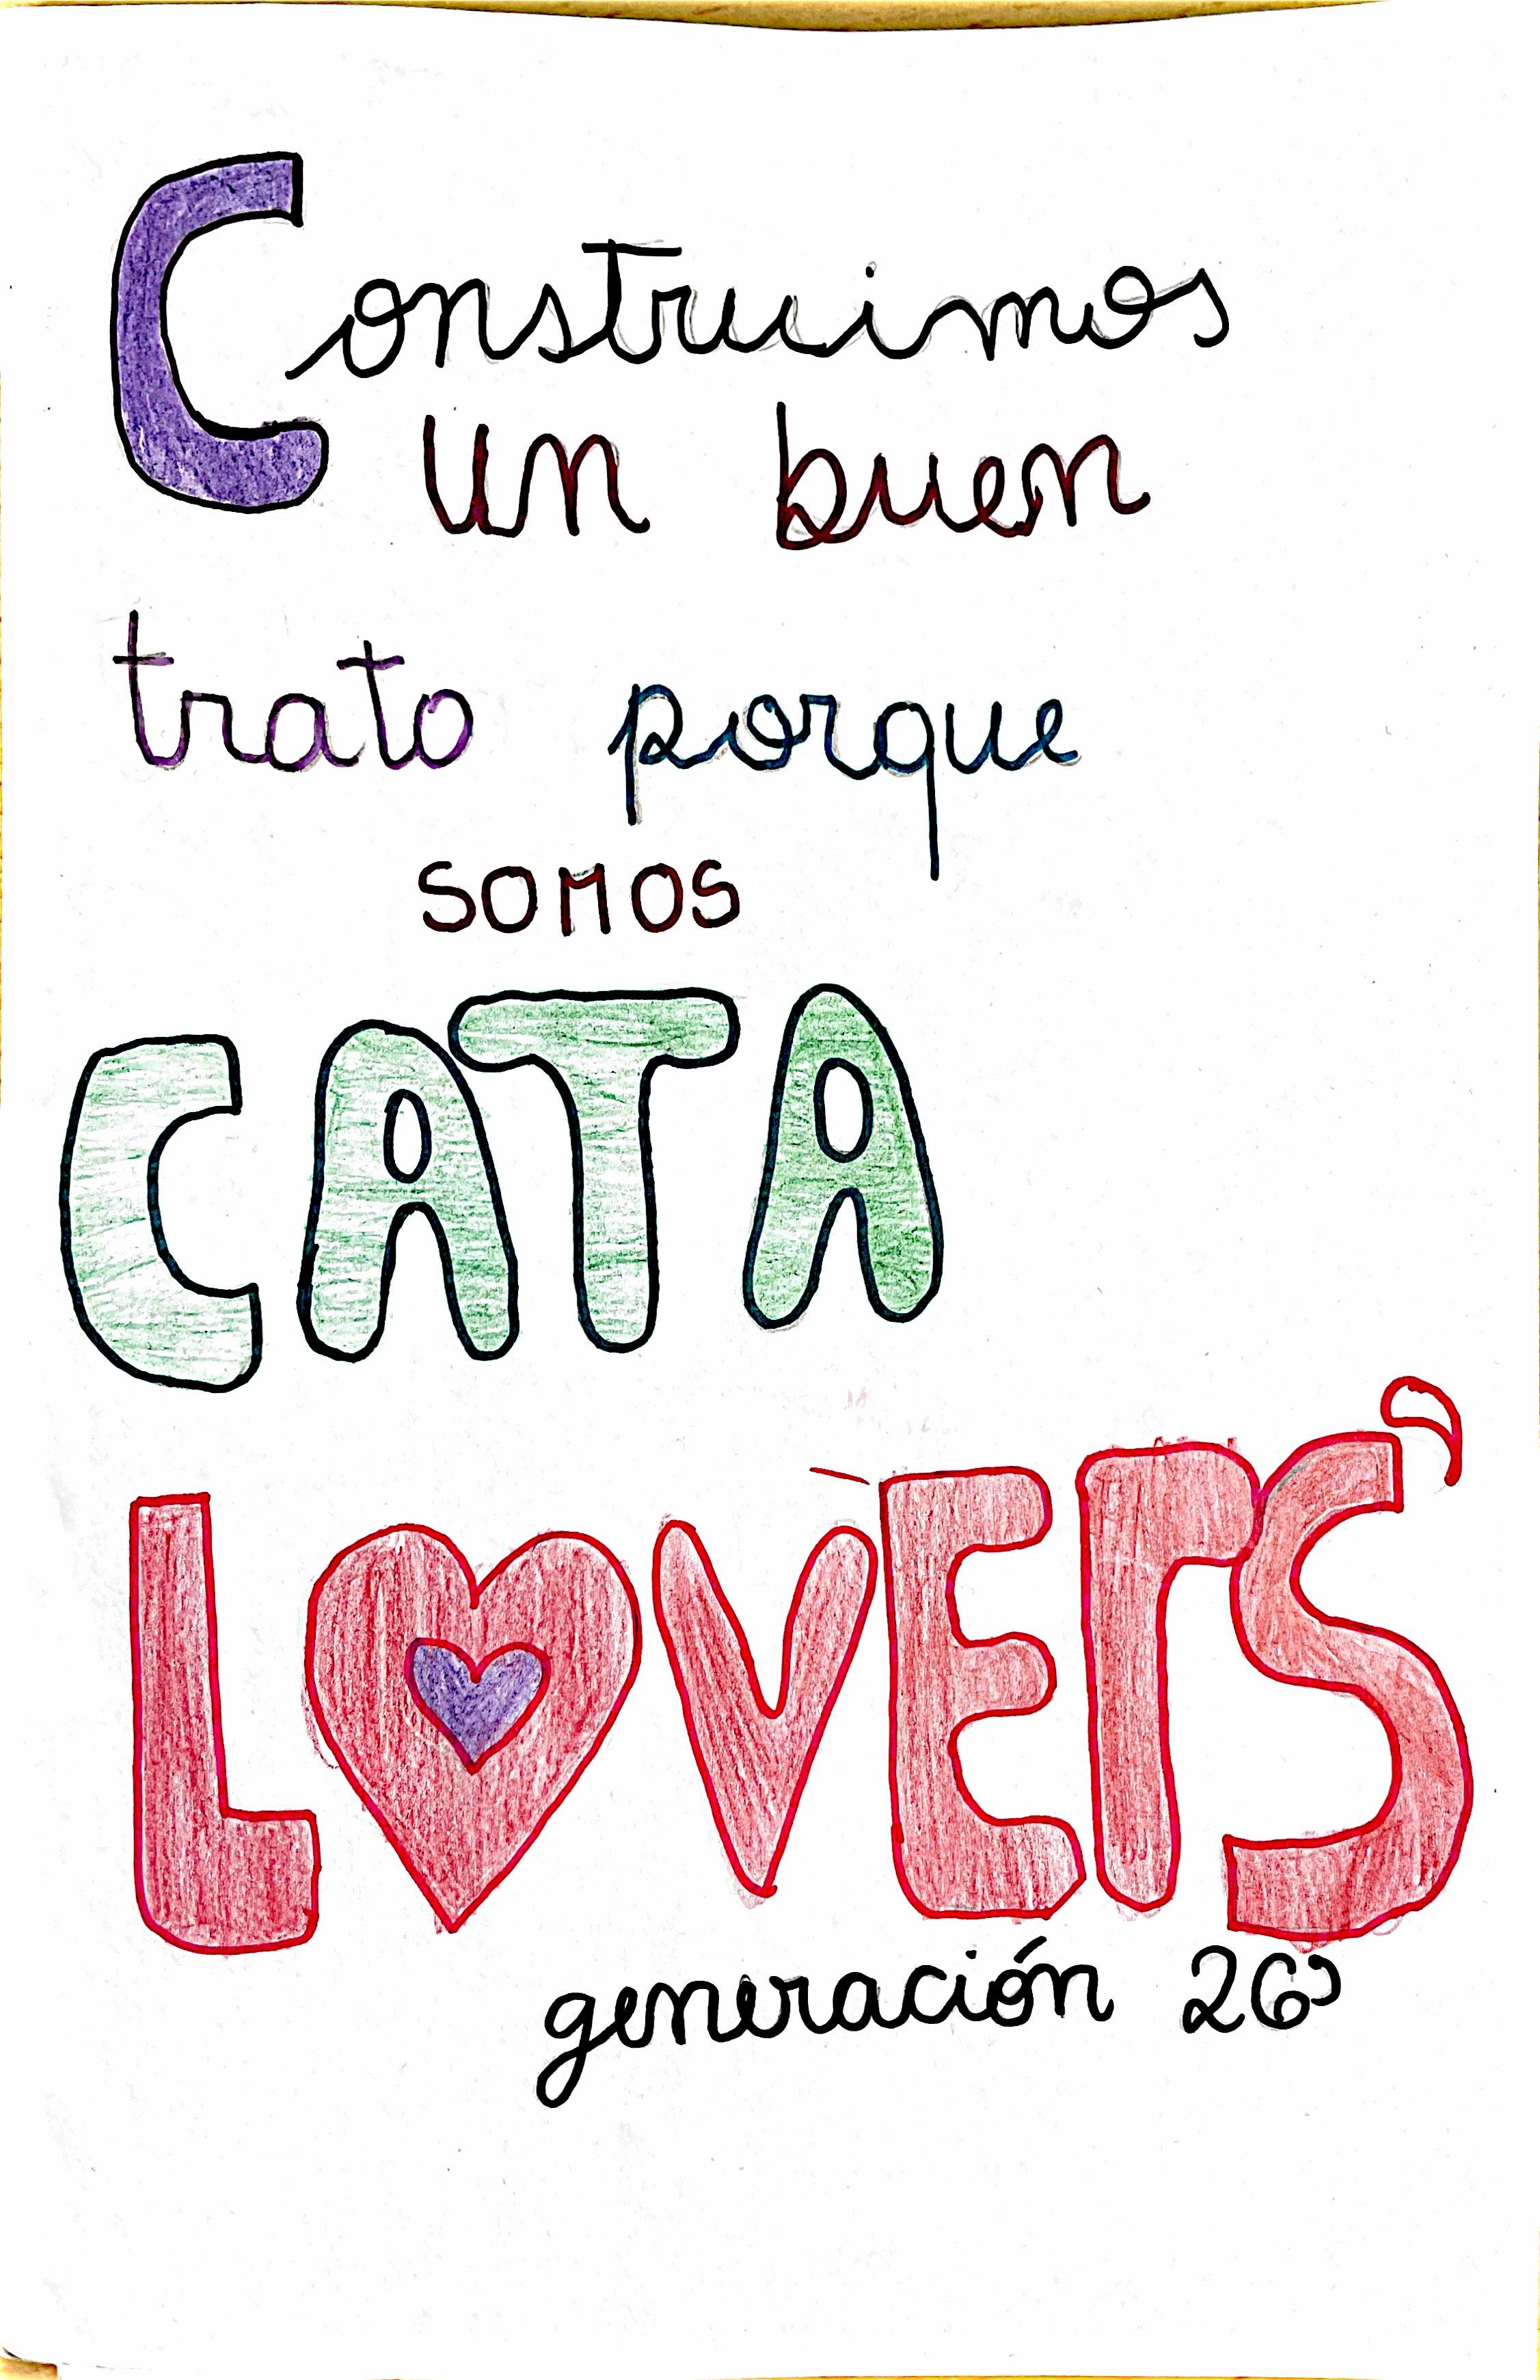 Construimos
un buen
trato porque
somos
CATA
LOVErS'
generación 26'